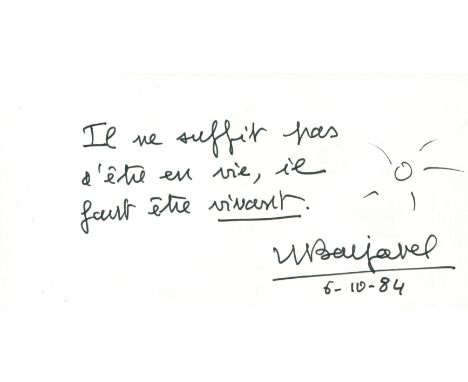 Il ne suffit pas
d'être en vie, il
faut être vivant.
RBarjavel
6-10-84